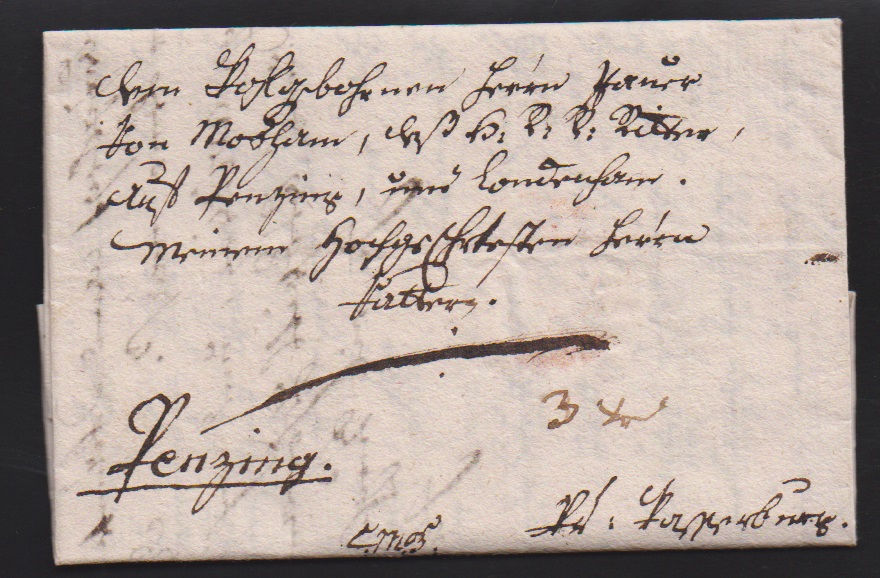 dem Wohlgebohrnen Herrn Pauer
von Moßham, deß H: R: R: Ritter,
auf Penzing, und Londenham.
Meinem Hochgeehrtesten Herrn
Vattern.
3 xr
Penzing.
Pr: Wasserburg.